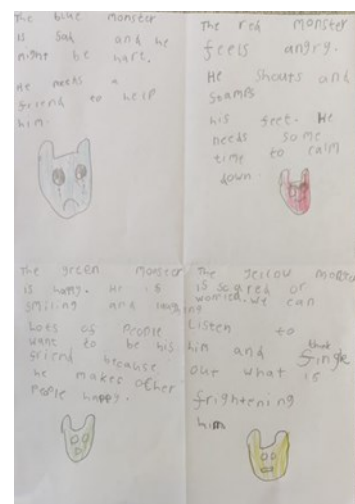 The blue monster
is sad and he
might be hurt.
He needs a
friend to help
him.
The red monster
feels angry.
He shouts and
stamps
his feet. He
needs some
time to calm
down
The green monster
is happy. He is
smiling and laughing
Lots of People
want to be his
friend because
he makes other
People happy.
The yellow monster
is scared or
worried. We can
Listen to
him and
out what is
frightening
him